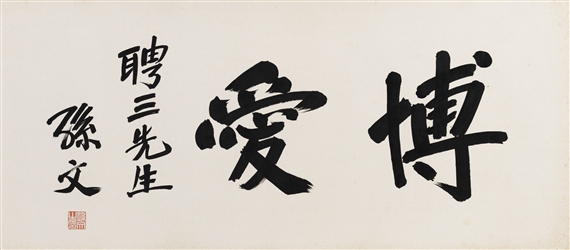 博愛
聘三先生
孫文